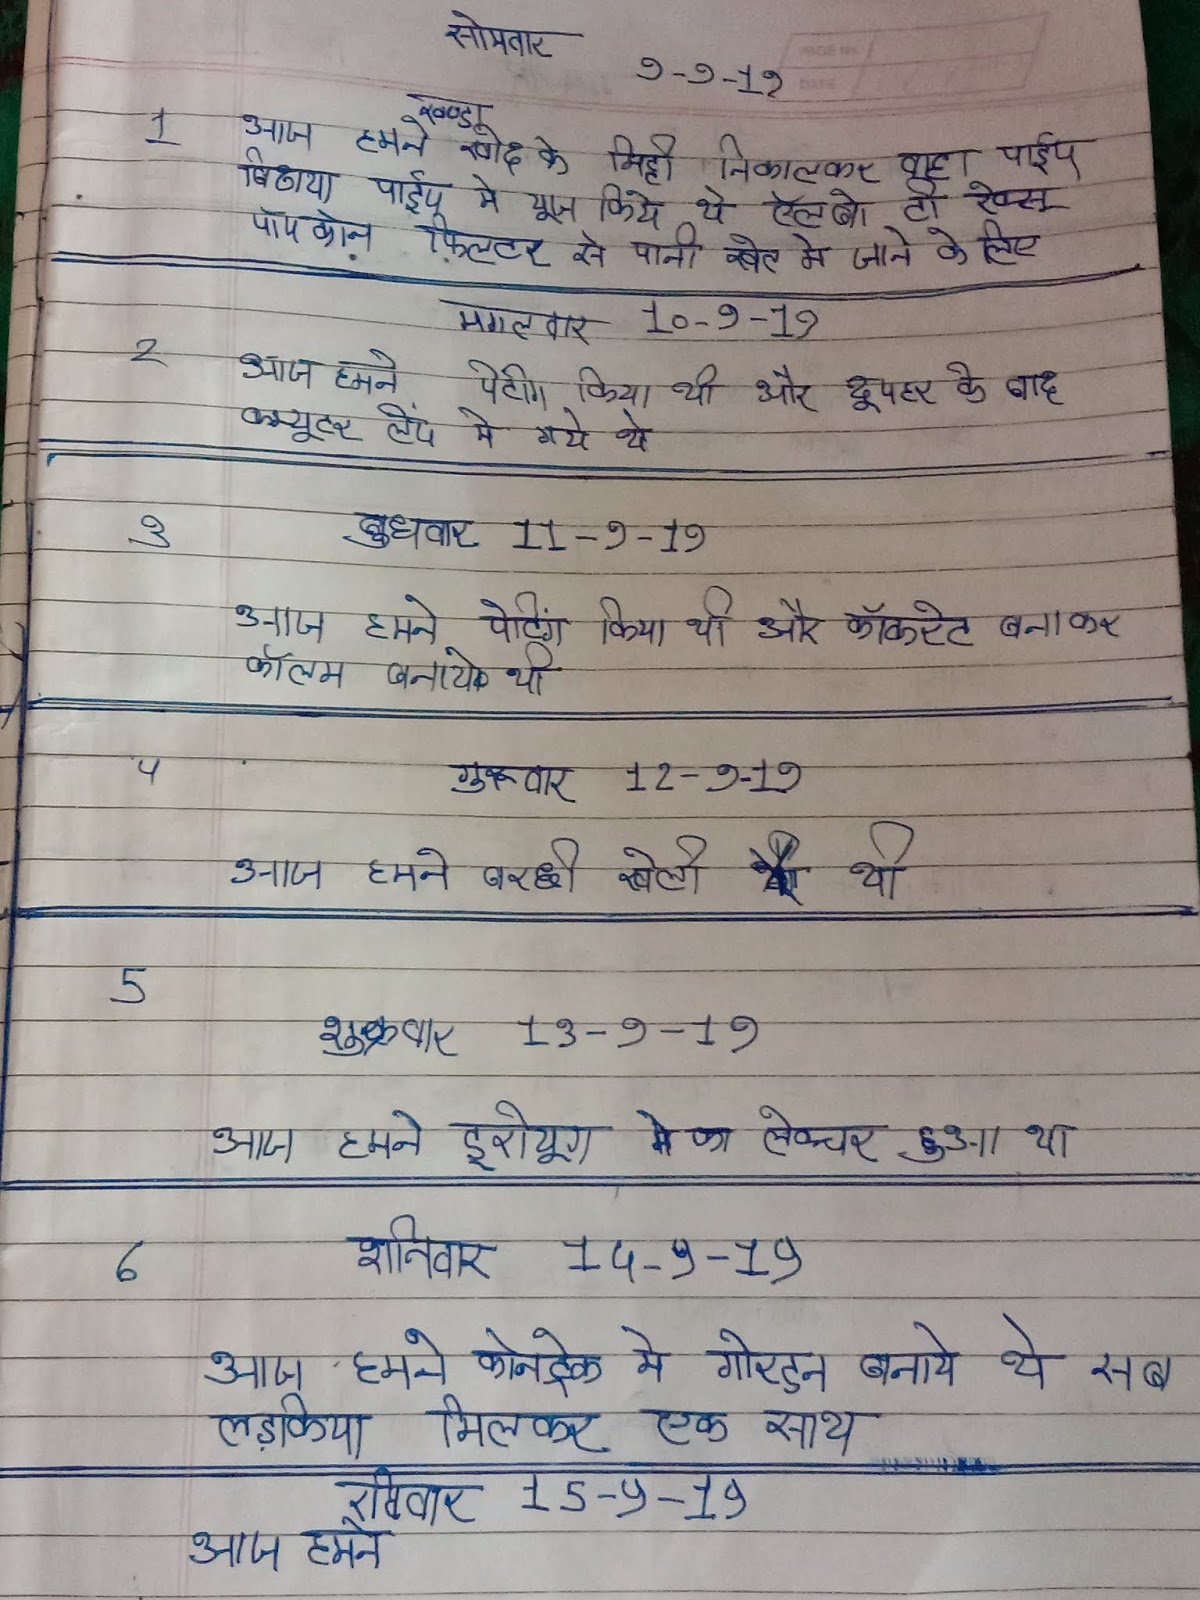 सोमवार
9-9-19
खण्डा
1 आज हमने खोद के मिट्टी निकालकर वहा पाईप
बिठाया पाईप मे यूज किये थे ऍलबो टी
पॉपकोन फ़िल्टर से पानी खेत मे जाने के लिए
मगलवार 10-9-19
2 आज हमने पेटीग किया थी और दूपहर के बाद
कम्प्यूटर लॅप मे गये थे
3 बुधवार 11-9-19
आज हमने पेटिंग किया थी और कॉकरेट बनाकर
कॉलम बनाये थी
4 गुरूवार 12-9-19
आज हमने बरछी खेली थी
5
शुक्रवार 13-9-19
आज हमने इरोयूग का लेक्चर हुआ था
6 शनिवार 14-9-19
आज हमने कोनट्रेक मे गोरडन बनाये थे सब
लड़किया मिलकर एक साथ
रविवार 15-9-19
आज हमने